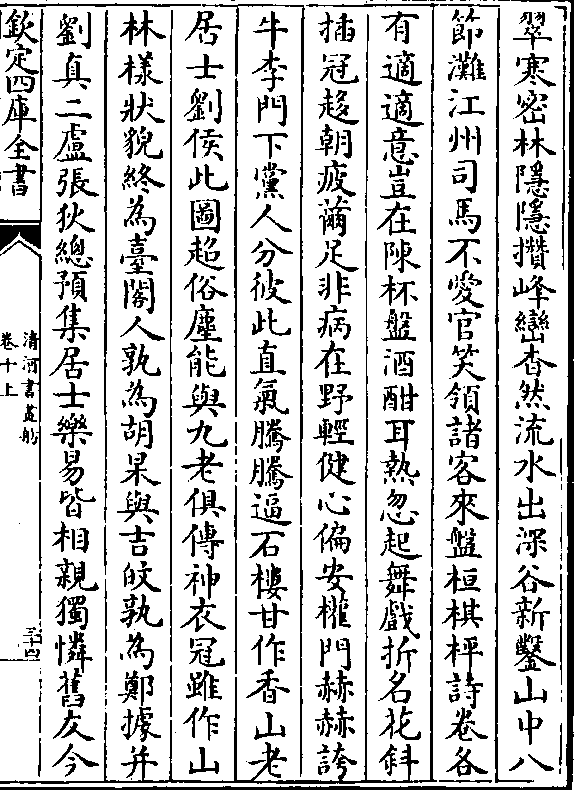 翠寒密林隱隱攢峰巒杳然流水出深谷新鑿山中八
節灘江州司馬不愛官笑領諸客來盤桓棋枰詩卷各
有適適意豈在陳杯盤酒酣耳熱忽起舞戲折名花斜
插冠趍朝疲薾足非病在野輕健心偏安權門赫赫誇
牛李門下黨人分彼此直氣騰騰逼石樓甘作香山老
居士劉侯此圖超俗塵能與九老俱傳神衣冠雖作山
林様狀貌終為臺閣人孰為胡杲與吉旼孰為鄭據并
劉真二盧張狄總預集居士樂易皆相親獨憐舊友今
欽定四庫全書
清河書畫舫
卷十上
三十四